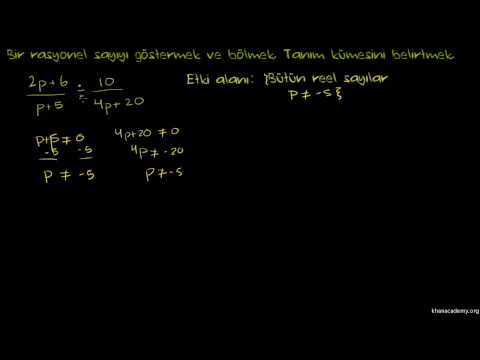 Bir rasyonel sayıyı göstermek ve bölmek Tanım kümesini belirtmek
2p+6 / p+5 ÷ 10 / 4p+20
Etki alanı: }Bütün reel sayılar
p ≠ -5 }
p+5 ≠ 0
-5 -5
p ≠ -5
4p+20 ≠ 0
4p ≠ -20
p ≠ -5
khanacademy.org